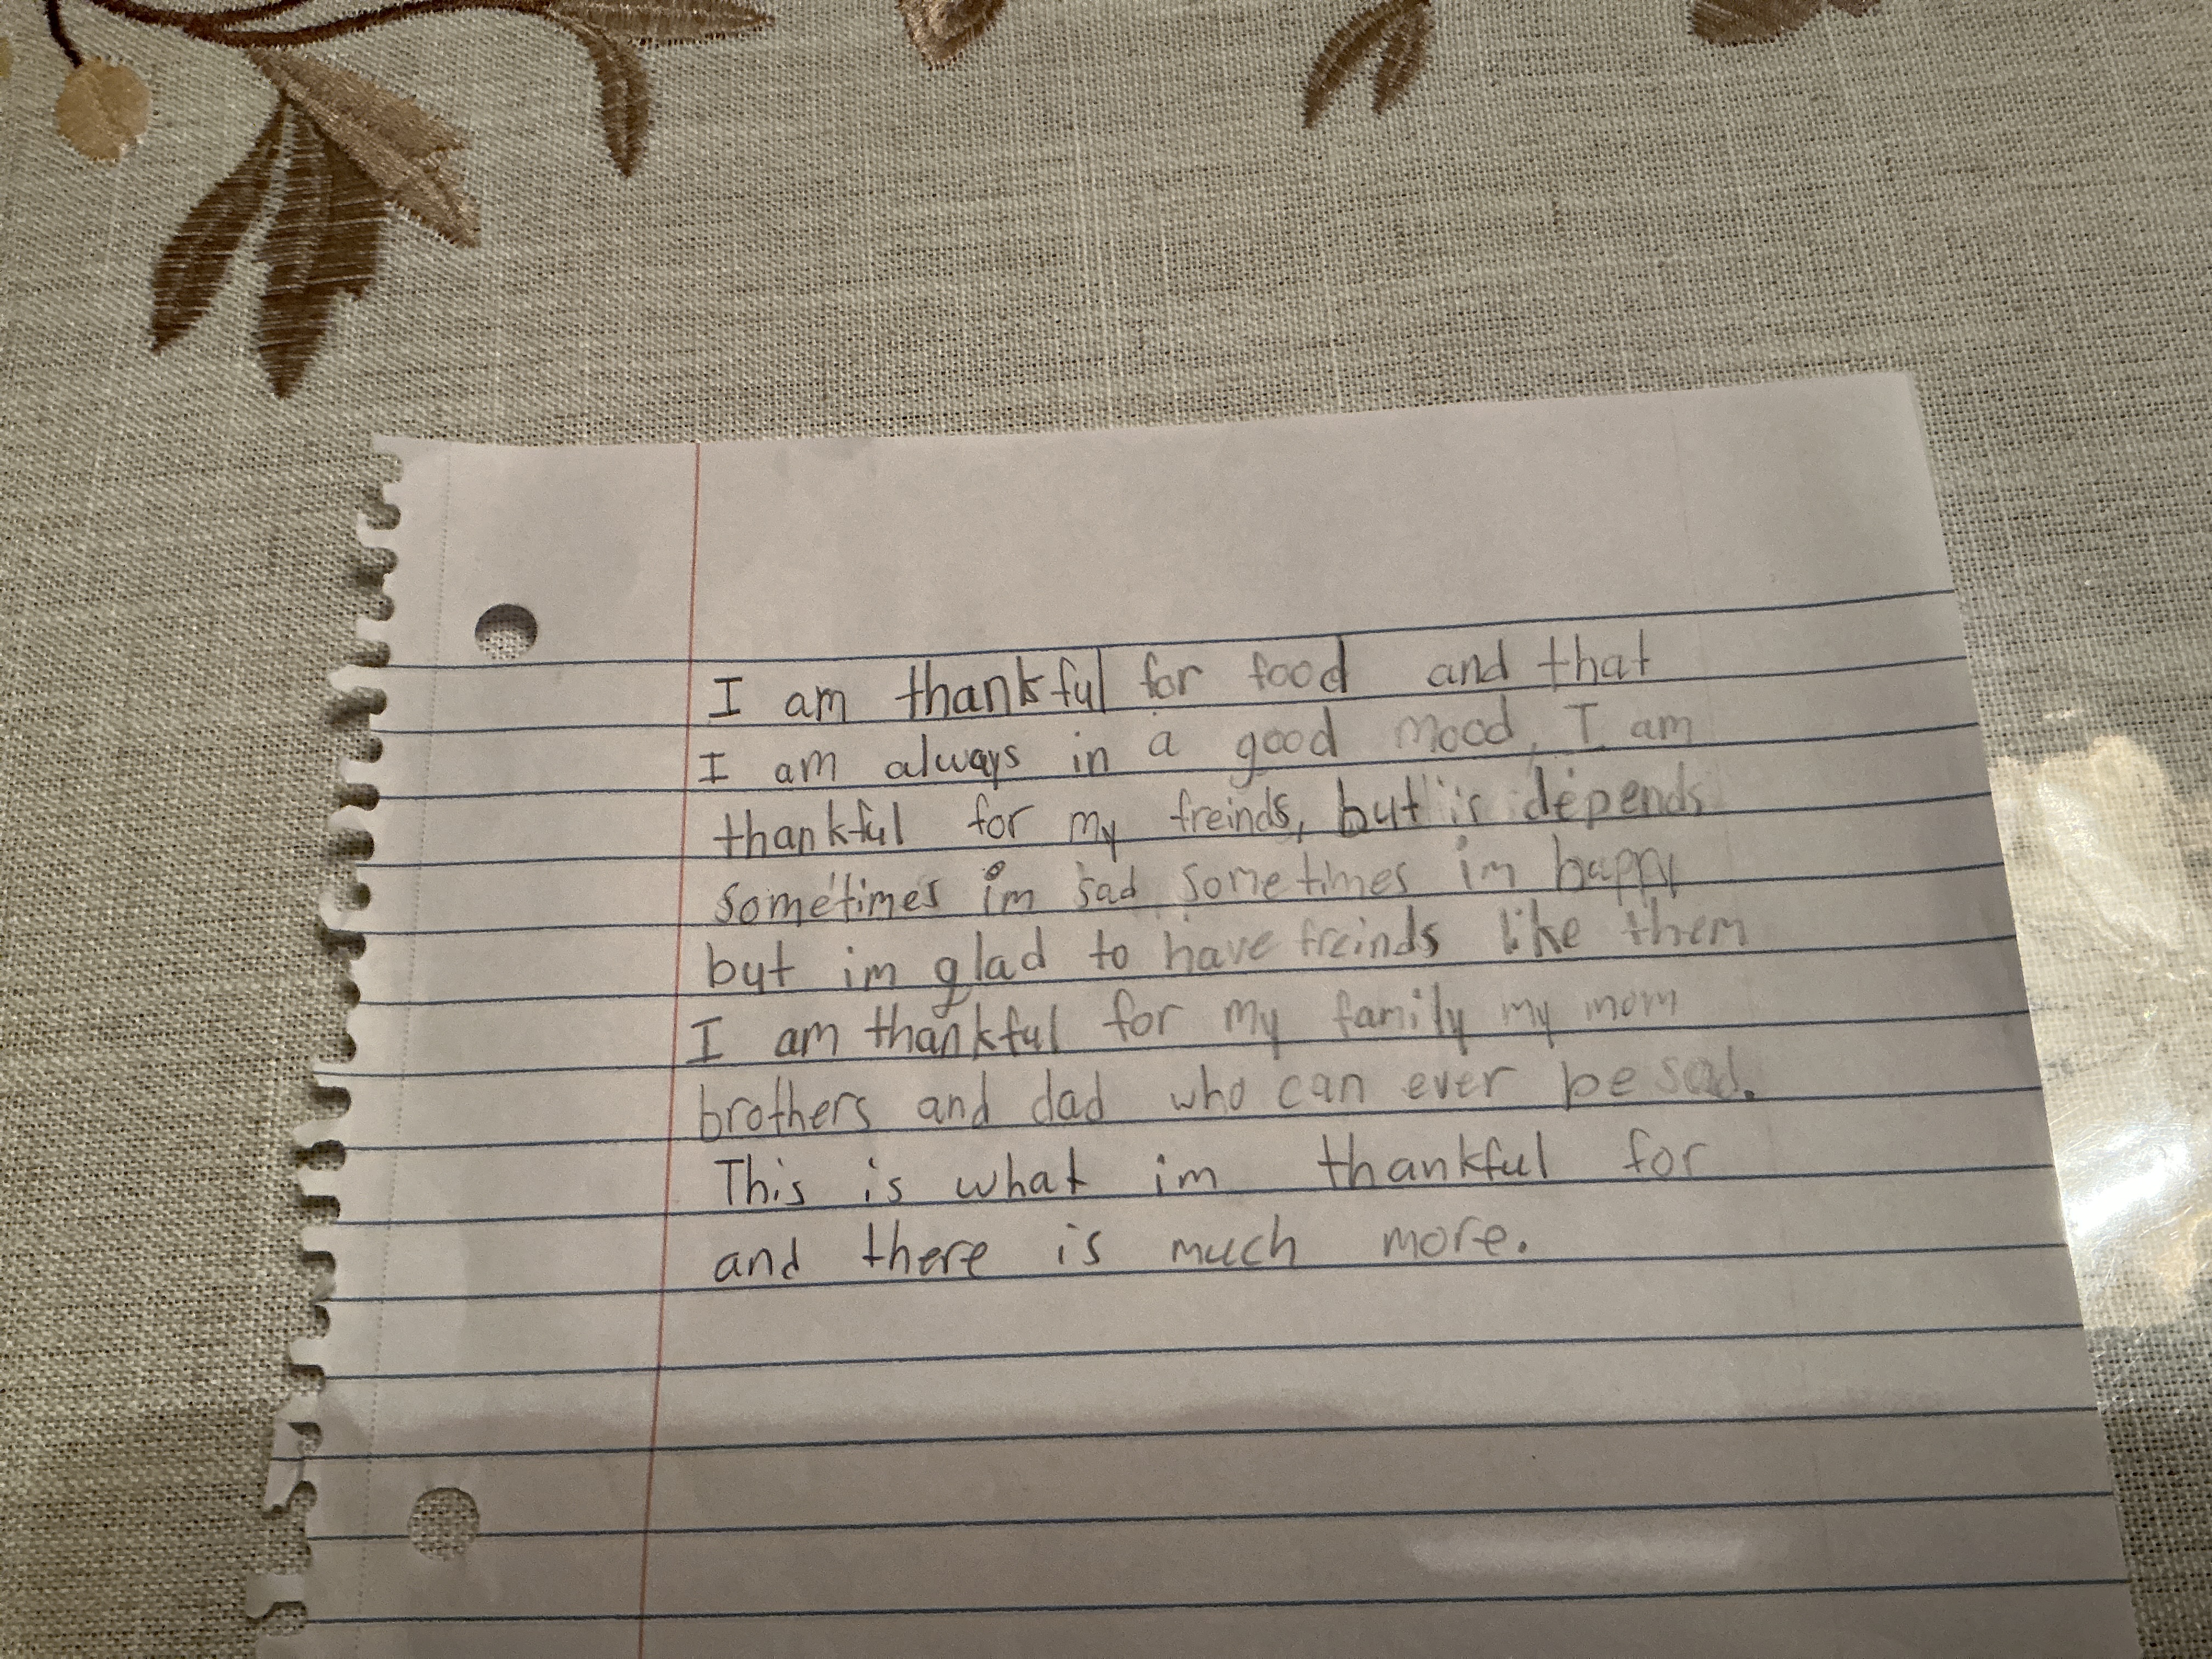 I am thankful for food and that
I am always in a good mood, I am
thankful for my freinds, but is depends
sometimes im sad sometimes im happy
but im glad to have freinds like them
I am thankful for my family my mom
brothers and dad who can ever be sad.
This is what im thankful for
and there is much more.